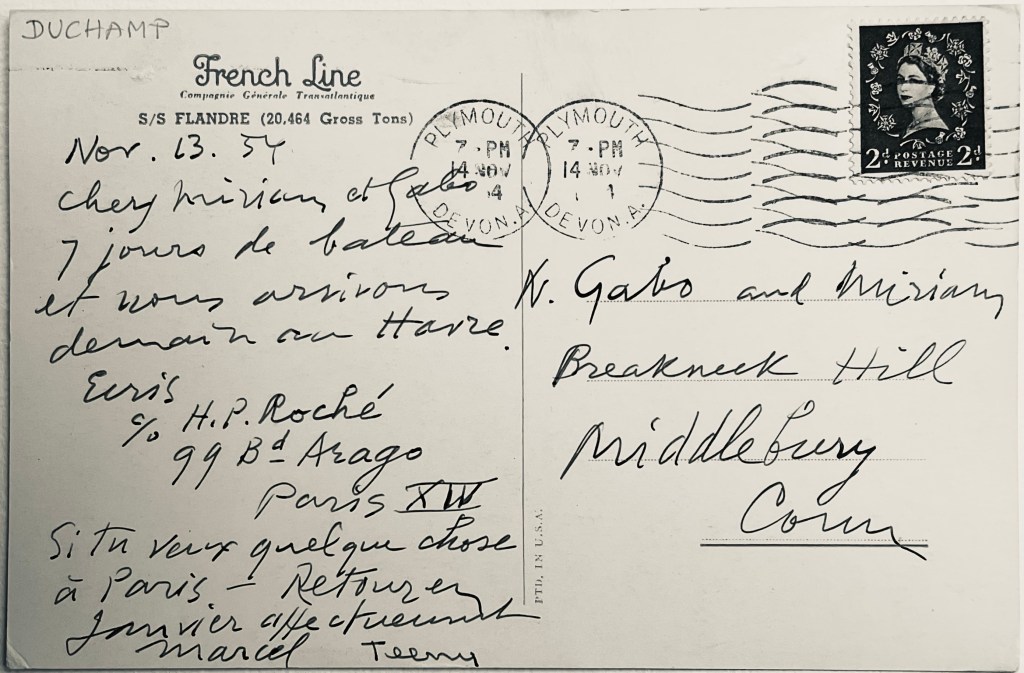 DUCHAMP
French Line
Compagnie Générale Transatlantique
S/S FLANDRE (20,464 Gross Tons)
Nov. 13. 54
Chers Miriam et Gabo
7 jours de bateau
et nous arrivons
demain au Havre.
Ecris
c/o H.P. Roché
99 Bd Arago
Paris XIV
Si tu veux quelque chose
à Paris — Retour en
Janvier affectueusement
Marcel Teeny
PLYMOUTH
7 - PM
14 NOV
DEVON.A.
PLYMOUTH
7 - PM
14 NOV
DEVON.A.
2d POSTAGE REVENUE 2d
N. Gabo and Miriam
Breakneck Hill
Middlebury
Conn
PTD. IN U.S.A.